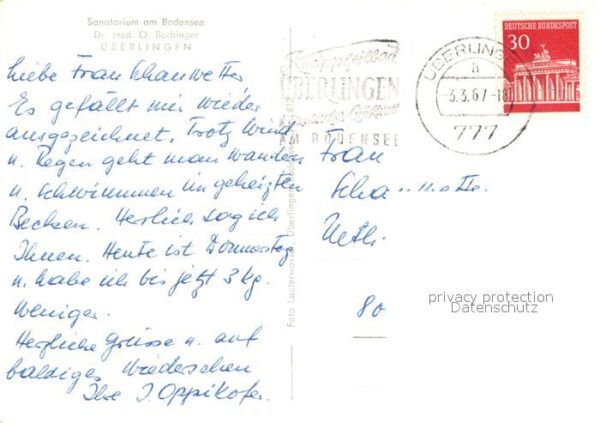 Sanatorium am Bodensee
Dr. med. O. Buchinger
ÜBERLINGEN
Liebe Frau Schauwetter
Es gefällt mir wieder
ausgezeichnet. Trotz Wind
u. Regen geht man wandern
u. schwimmen im geheizten
Becken. Herrlich sag ich
Ihnen. Heute ist Donnerstag
u. habe ich bis jetzt 3 kg.
weniger.
Herzliche Grüsse u. auf
baldiges Wiedersehen
Ihre J. Oppikofer.
Foto Lauterwasser, Überlingen
Kneippheilbad
ÜBERLINGEN
AM BODENSEE
ÜBERLINGEN
h
-3.3.67-18
777
DEUTSCHE BUNDESPOST
30
Frau
80
privacy protection
Datenschutz